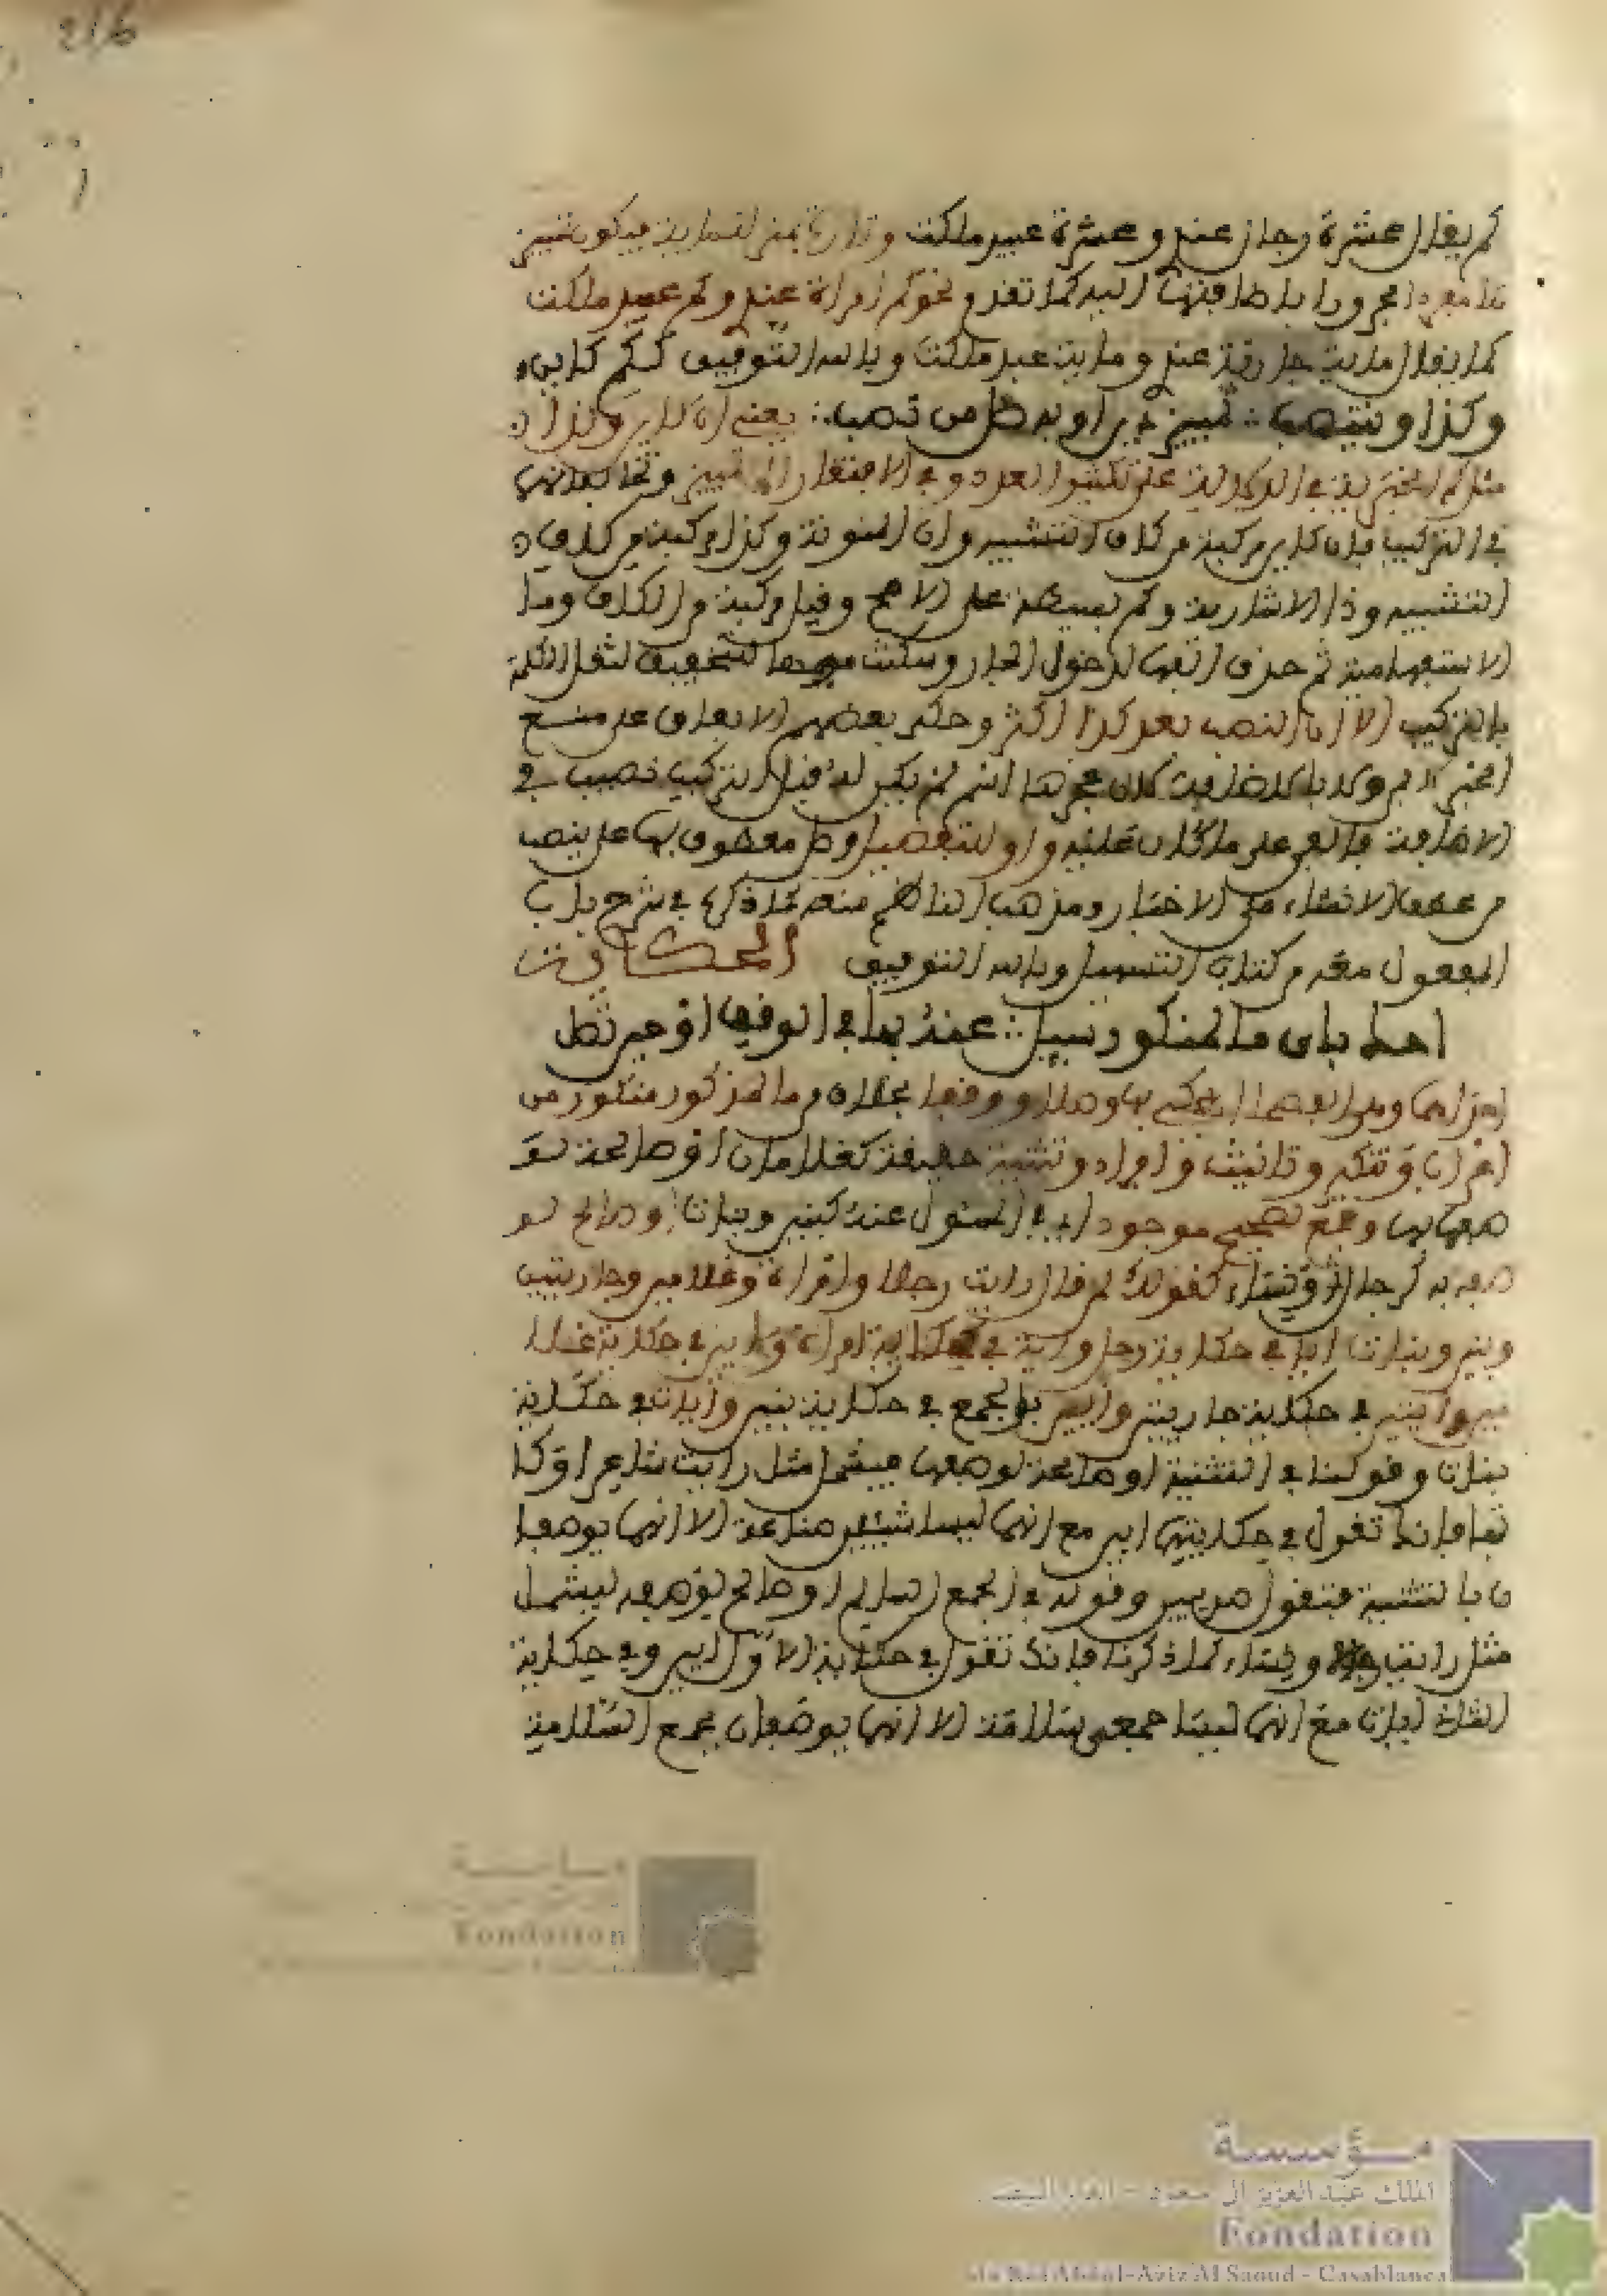 216
كم يقال عشرة رجال عندي وعشرة عبيد ملكت وتارة بمنزلة مائة فيكون تمييز
ها مفردا مجرورا باضافتها اليه كما تقدم نحو كم امراة عندي وكم عبد ملكت
كما يقال ماية جارية عندي وماية عبد ملكت وبالله التوفيق ككم كاين
وكذا وينتصب ∴ تمييز ذين او به صل من تصب ∴ يعني ان كاين وكذا
مثل كم الخبرية في الدلالة على تكثير العدد وفي الافتقار الى تمييز وتخالفانها
في التركيب فان كاين مركبة من كاف التشبيه واي المنونة وكذا مركبة من كاف
التشبيه وذا الاشارية وكم بسيطة على الاصح وقيل مركبة من الكاف وما
الاستفهامية ثم حذف الفها لدخول الجار وسكنت ميمها للتخفيف لثقل الكلمة
بالتركيب الا ان النصب بعد كذا اكثر وحكى بعضهم الاتفاق على منع
الجر بالاضافة لان عجزها لم يكن له قبل التركيب نصيب في
الاضافة فابقي على ما كان عليه واو للتفصيل وصل معطوف بها على ينصب
من عطف الانشاء على الاخبار ومذهب الناظم منعه كما ذكره في شرح باب
المفعول معه من كتاب التسهيل وبالله التوفيق الحكاية
احك باي ما لمنكور سيل ∴ عنه بها في الوقف او حين تصل
وصلا ووقفا ما لمذكور منكور من
اعراب وتذكير وتانيث وافراد وتثنية حقيقة كغلامان او صالحة لو
صفها بها وجمع تصحيح موجود في المسئول عنه كبنين وبنات او صالح لو
صفه به كرجال ونساء كقولك لمن قال رايت رجلا وامراة وغلامين وجاريتين
وبنين وبنات ايا في حكاية رجل واية في حكاية امراة وايين في حكاية غلا
مين وايتين في حكاية جاريتين وايين بالجمع في حكاية بنين وايات في حكاية
بنات وقولنا في التثنية او صالحة لوصفها مثل رايت شاعرا وكا
تبا فانك تقول في حكايتهما ايين مع انهما ليسا تثنية صناعة الا انهما يوصفا
ن بالتثنية فتقول وقوله في الجمع السالم او صالح لوصفه ليشمل
مثل رايت رجالا ونساء كما ذكرنا فانك تقول في حكاية الاول ايين وفي حكاية
الثاني ايات مع انهما ليسا جمعي سلامة الا انهما يوصفان بجمع السلامة
Fondation
مؤسسة
الملك عبد العزيز آل سعود - الدار البيضاء
Fondation
du Roi Abdul-Aziz Al Saoud - Casablanca